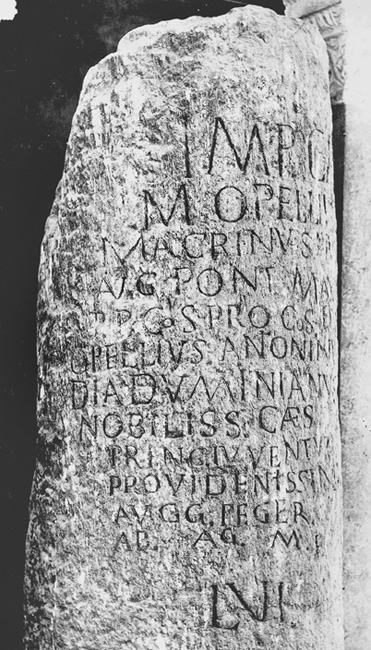 IMP. C
M. OPELLI
MACRINVS
AVG PONT MA
P. P. CoS PRO CoS. E
OPELLIVS ANONIN
DIADVMINIANV
NOBILISS. CAES
PRINC IVVENTV
PROVIDENISSIM
AVGG. FEGER
AB. AQ. M. P
LVI.